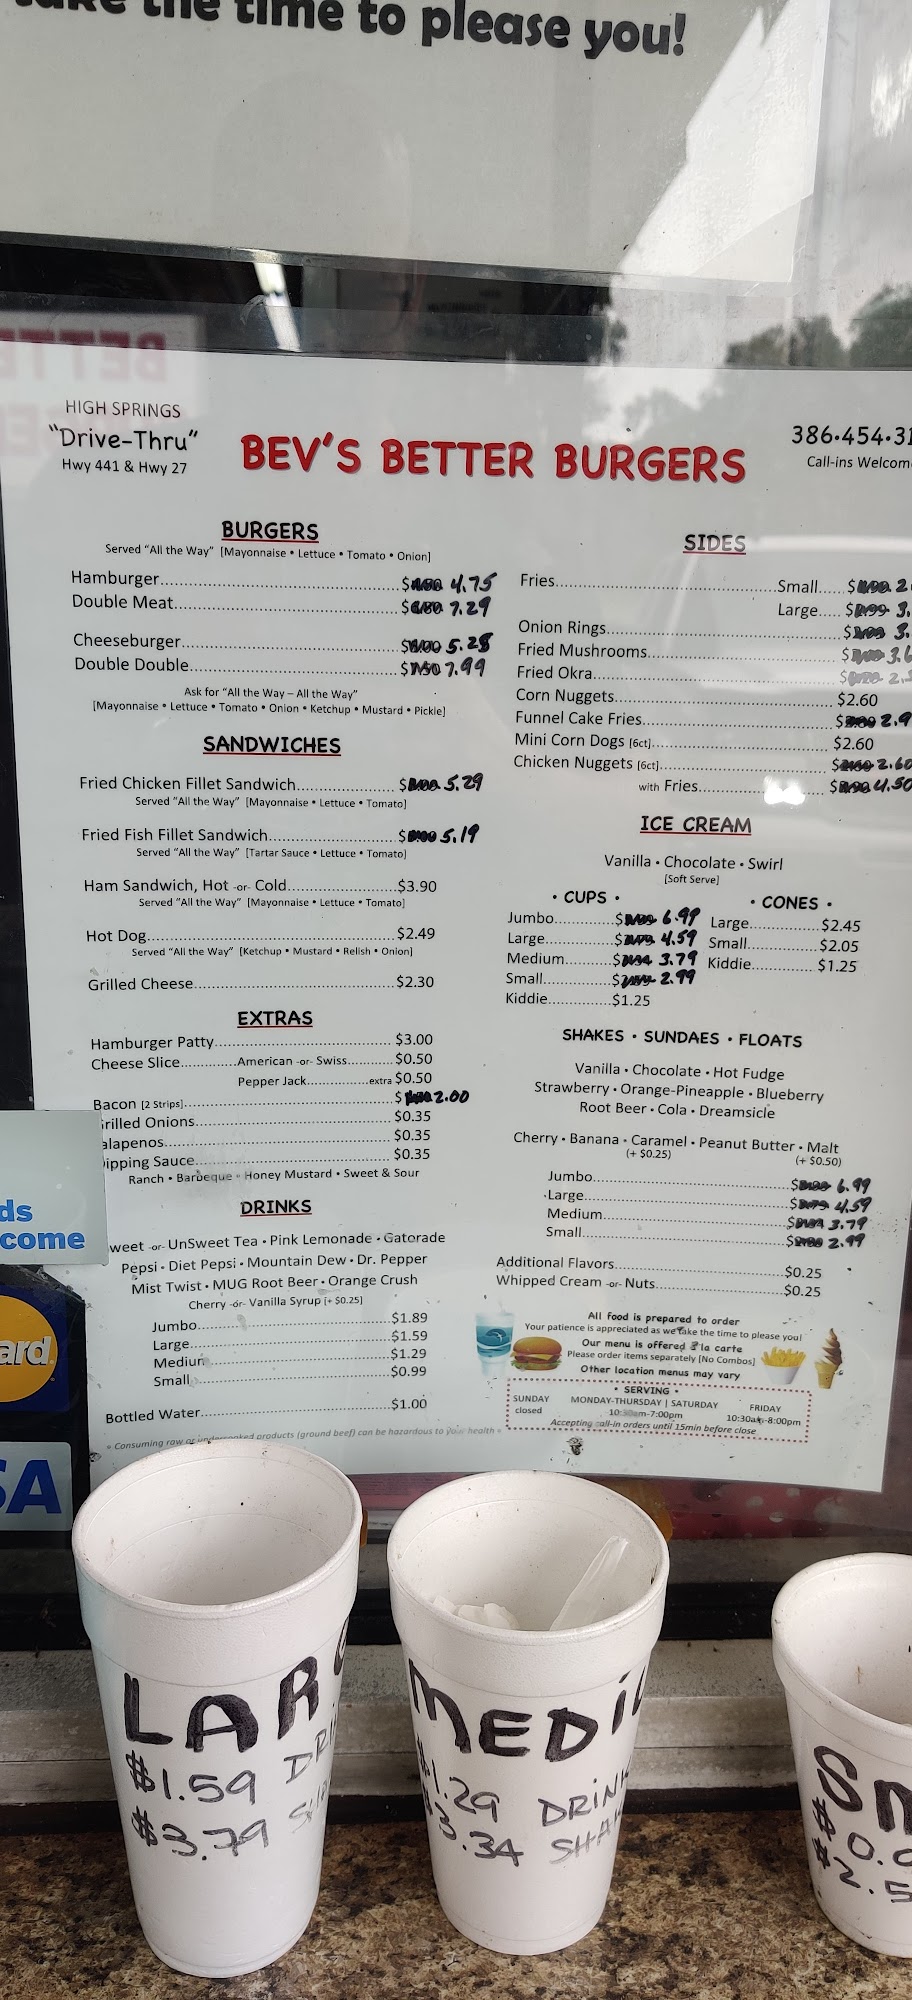 take the time to please you!
HIGH SPRINGS
"Drive-Thru"
Hwy 441 & Hwy 27
BEV'S BETTER BURGERS
386•454•31
Call-ins Welcome
BURGERS
Served "All the Way" [Mayonnaise • Lettuce • Tomato • Onion]
Hamburger $ 4.75
Double Meat $ 7.29
Cheeseburger $ 5.28
Double Double $ 7.99
Ask for "All the Way – All the Way"
[Mayonnaise • Lettuce • Tomato • Onion • Ketchup • Mustard • Pickle]
SANDWICHES
Fried Chicken Fillet Sandwich $ 5.29
Served "All the Way" [Mayonnaise • Lettuce • Tomato]
Fried Fish Fillet Sandwich $ 5.19
Served "All the Way" [Tartar Sauce • Lettuce • Tomato]
Ham Sandwich, Hot -or- Cold $3.90
Served "All the Way" [Mayonnaise • Lettuce • Tomato]
Hot Dog $2.49
Served "All the Way" [Ketchup • Mustard • Relish • Onion]
Grilled Cheese $2.30
EXTRAS
Hamburger Patty $3.00
Cheese Slice American -or- Swiss $0.50
Pepper Jack extra $0.50
Bacon [2 Strips] $ 2.00
rilled Onions $0.35
alapenos $0.35
ipping Sauce $0.35
Ranch • Barbeque • Honey Mustard • Sweet & Sour
DRINKS
weet -or- UnSweet Tea • Pink Lemonade • Gatorade
Pepsi • Diet Pepsi • Mountain Dew • Dr. Pepper
Mist Twist • MUG Root Beer • Orange Crush
Cherry -or- Vanilla Syrup [+ $0.25]
Jumbo $1.89
Large $1.59
Medium $1.29
Small $0.99
Bottled Water $1.00
Consuming raw or undercooked products (ground beef) can be hazardous to your health
SIDES
Fries Small $ 2
Large $ 3.
Onion Rings $ 3.
Fried Mushrooms $ 3.
Fried Okra $ 2.
Corn Nuggets $2.60
Funnel Cake Fries $ 2.9
Mini Corn Dogs [6ct] $2.60
Chicken Nuggets [6ct] $ 2.60
with Fries $ 4.50
ICE CREAM
Vanilla • Chocolate • Swirl
[Soft Serve]
• CUPS •
Jumbo $ 6.99
Large $ 4.59
Medium $ 3.79
Small $ 2.99
Kiddie $1.25
• CONES •
Large $2.45
Small $2.05
Kiddie $1.25
SHAKES • SUNDAES • FLOATS
Vanilla • Chocolate • Hot Fudge
Strawberry • Orange-Pineapple • Blueberry
Root Beer • Cola • Dreamsicle
Cherry • Banana • Caramel • Peanut Butter • Malt
(+ $0.25) (+ $0.50)
Jumbo $ 6.99
Large $ 4.59
Medium $ 3.79
Small $ 2.99
Additional Flavors $0.25
Whipped Cream -or- Nuts $0.25
All food is prepared to order
Your patience is appreciated as we take the time to please you!
Our menu is offered a la carte
Please order items separately [No Combos]
Other location menus may vary
• SERVING •
SUNDAY closed
MONDAY-THURSDAY | SATURDAY
10:30am-7:00pm
FRIDAY
10:30am-8:00pm
Accepting call-in orders until 15min before close
ds
come
ard
SA
LARG
$1.59 DRI
$3.79 SH
MEDIU
$1.29 DRINK
$3.34 SHA
Sm
$0.
$2.5